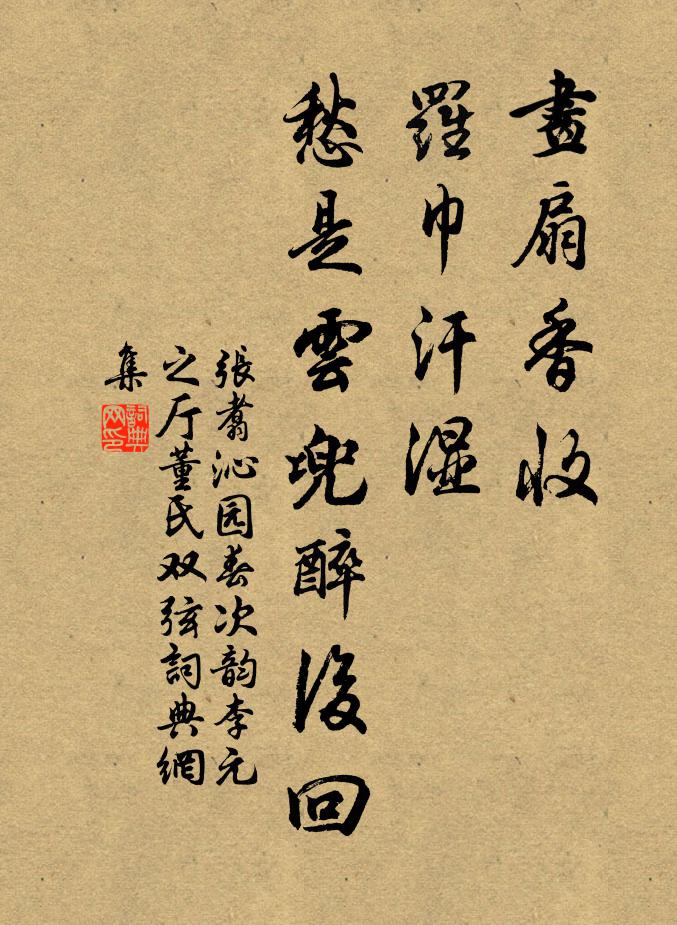 畫扇香收
羅巾汗濕
愁是雲兜醉後回
張翥沁园春次韵李元
之厅董氏双弦詞典網
集
詞典網印